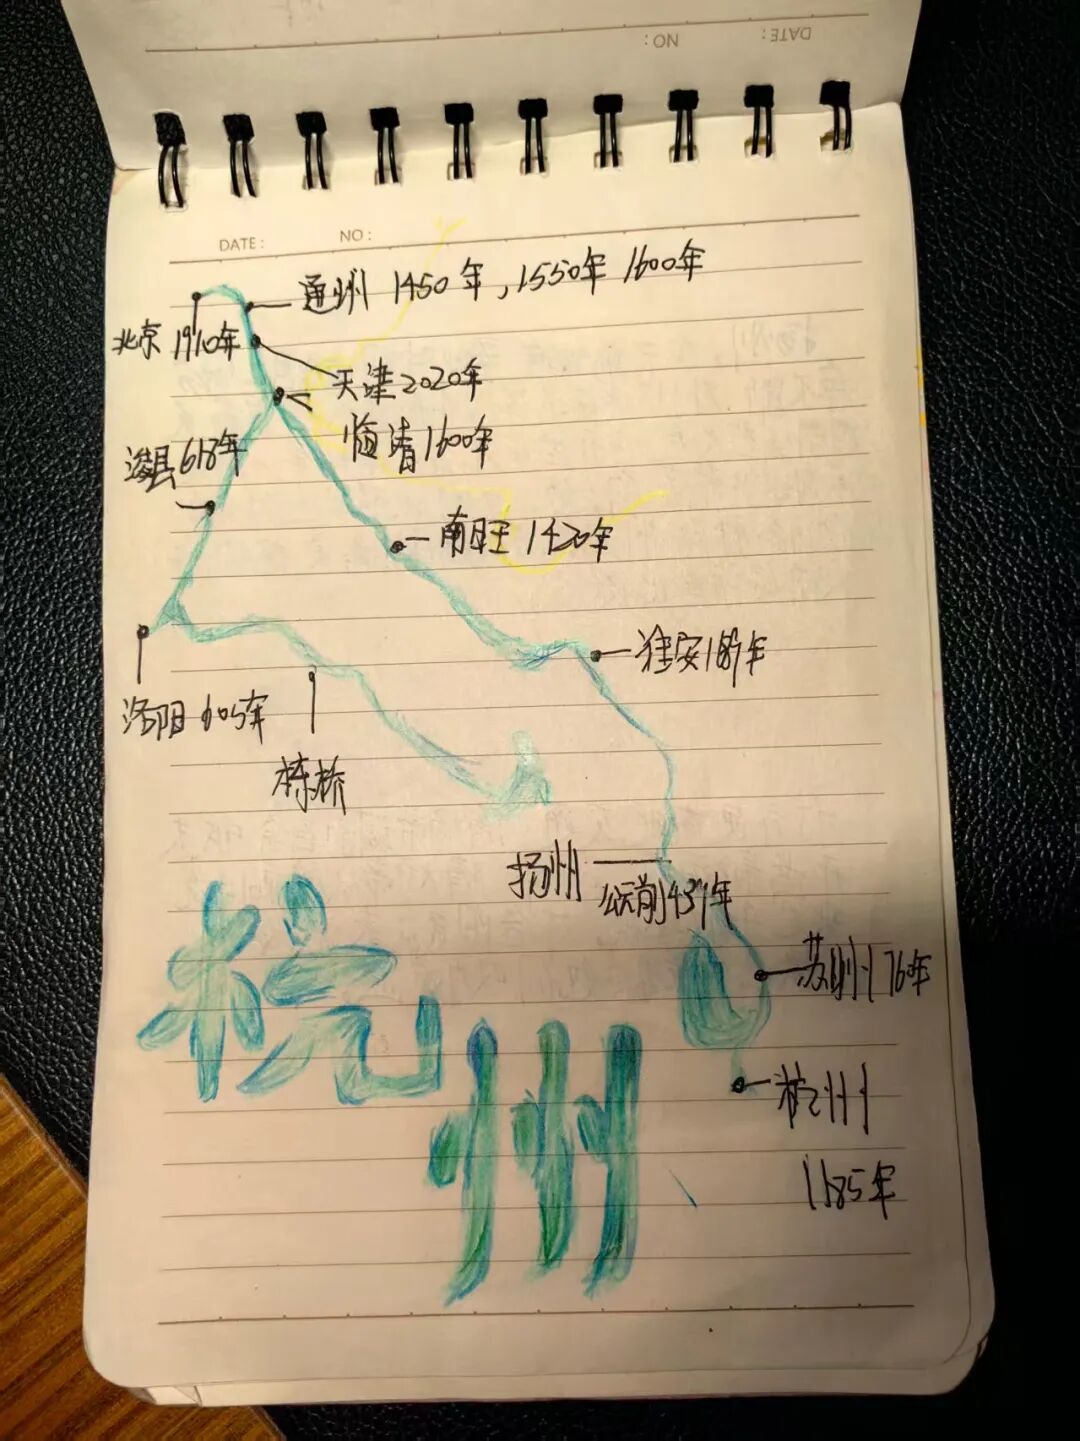 DATE: NO:
DATE: NO:
通州 1450年,1550年 1600年
北京 1910年
天津2020年
临清1600年
浚县618年
南旺 1420年
淮安189年
洛阳 605年
栋桥
扬州
公元前431年
苏州1760年
杭州
1185年
杭州